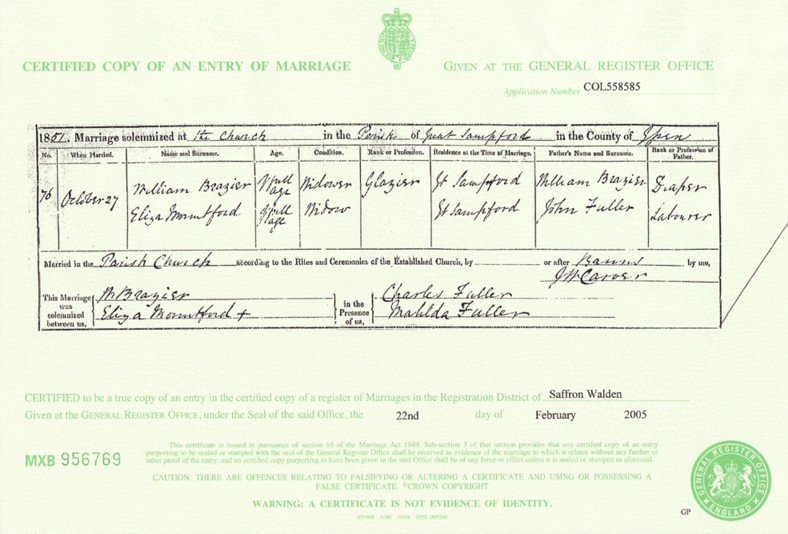 CERTIFIED COPY OF AN ENTRY OF MARRIAGE
GIVEN AT THE GENERAL REGISTER OFFICE
Application Number COL558585
1851. Marriage solemnized at the Church in the Parish of Great Sampford in the County of Essex
No. When Married. Name and Surname. Age. Condition. Rank or Profession. Residence at the Time of Marriage. Father's Name and Surname. Rank or Profession of Father.
76 October 27 William Brazier Full age Widower Glazier Gt Sampford William Brazier Draper
Eliza Mountford Full age Widow Gt Sampford John Fuller Labourer
Married in the Parish Church according to the Rites and Ceremonies of the Established Church, by or after Banns by me,
This Marriage was solemnized between us,
W Brazier
Eliza Mountford +
in the Presence of us,
Charles Fuller
Matilda Fuller
CERTIFIED to be a true copy of an entry in the certified copy of a register of Marriages in the Registration District of Saffron Walden
Given at the GENERAL REGISTER OFFICE, under the Seal of the said Office, the 22nd day of February 2005
MXB 956769
This certificate is issued in pursuance of section 65 of the Marriage Act 1949. Sub-section 3 of that section provides that any certified copy of an entry
purporting to be sealed or stamped with the seal of the General Register Office shall be received as evidence of the marriage to which it relates without any further or
other proof of the entry, and no certified copy purporting to have been given in the said Office shall be of any force or effect unless it is sealed or stamped as aforesaid.
CAUTION: THERE ARE OFFENCES RELATING TO FALSIFYING OR ALTERING A CERTIFICATE AND USING OR POSSESSING A
FALSE CERTIFICATE ©CROWN COPYRIGHT
WARNING: A CERTIFICATE IS NOT EVIDENCE OF IDENTITY.
GENERAL REGISTER OFFICE
ENGLAND
GP